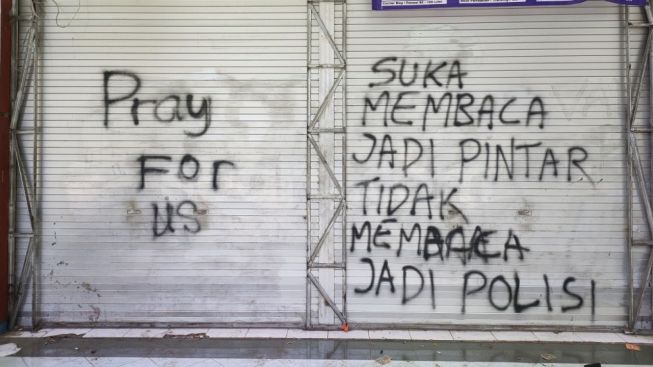 Pray
For
us
SUKA
MEMBACA
JADI PINTAR
TIDAK
MEMBACA
JADI POLISI